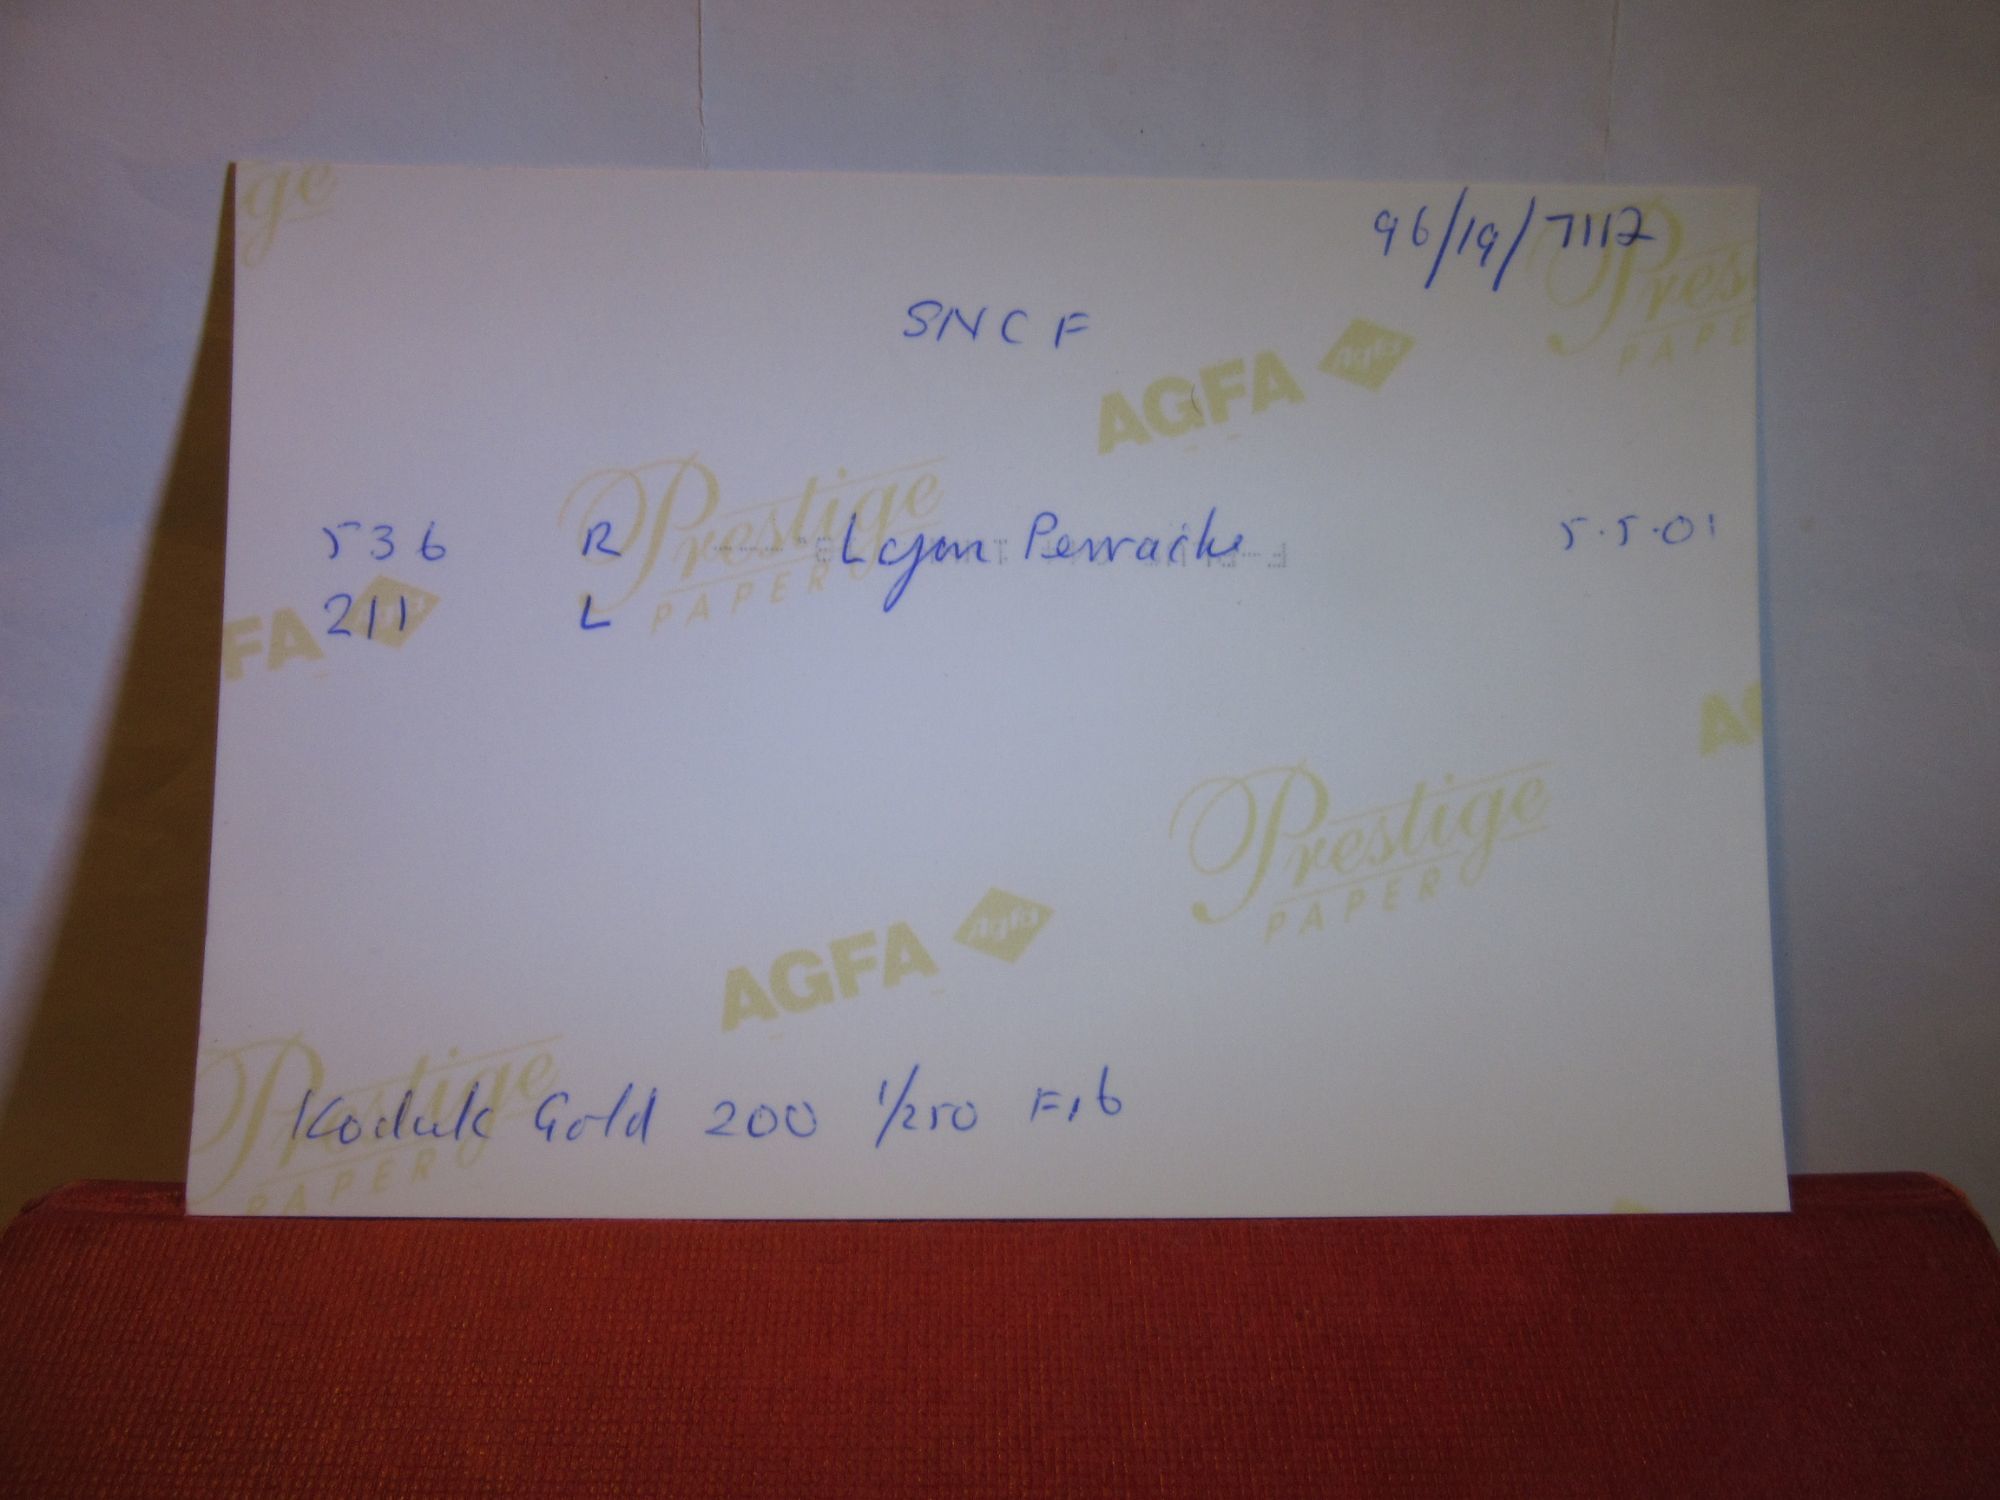 ge
96/19/7112
Pres
PAPE
SNCF
AGFA Agfa
Prestige
PAPER
536 R Lyon Perrache 5.5.01
211 L
FA
AG
Prestige
PAPER
AGFA Agfa
Prestige
PAPER
Kodak Gold 200 1/250 F16